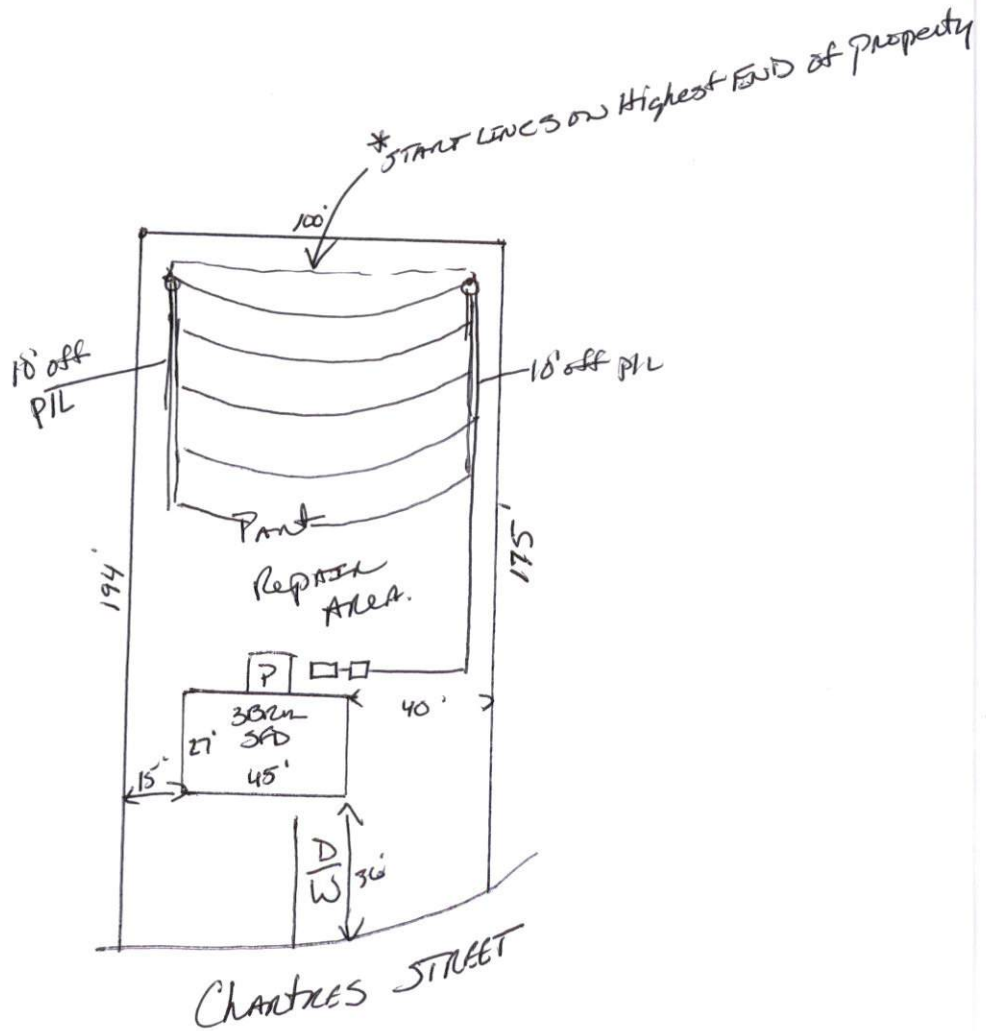 *START LINES ON Highest END of Property
100'
10' off
P/L
10' off P/L
194'
175'
Part
Repair
Area.
P
40'
3BRM
SFD
27'
45'
15'
D/W
36'
Chartres STREET